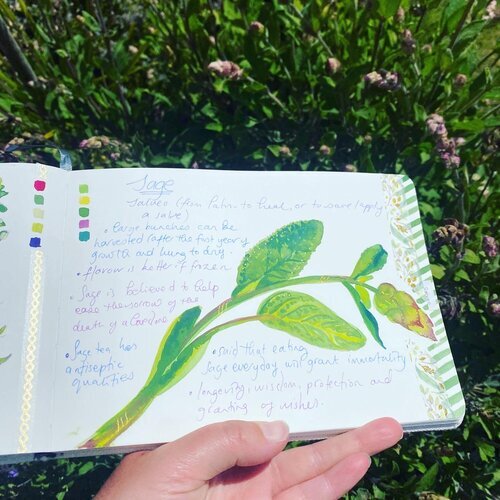 Sage
Salveo (from Latin to heal, or to save/apply
a salve)
• Large bunches can be
harvested (after the first year of
growth and hung to dry.
• flavour is better if frozen.
• Sage is believed to help
ease the sorrow of the
death of a loved one
• Sage tea has
antiseptic
qualities
• Said that eating
Sage everyday will grant immortality!
• longevity, wisdom, protection and
granting of wishes.